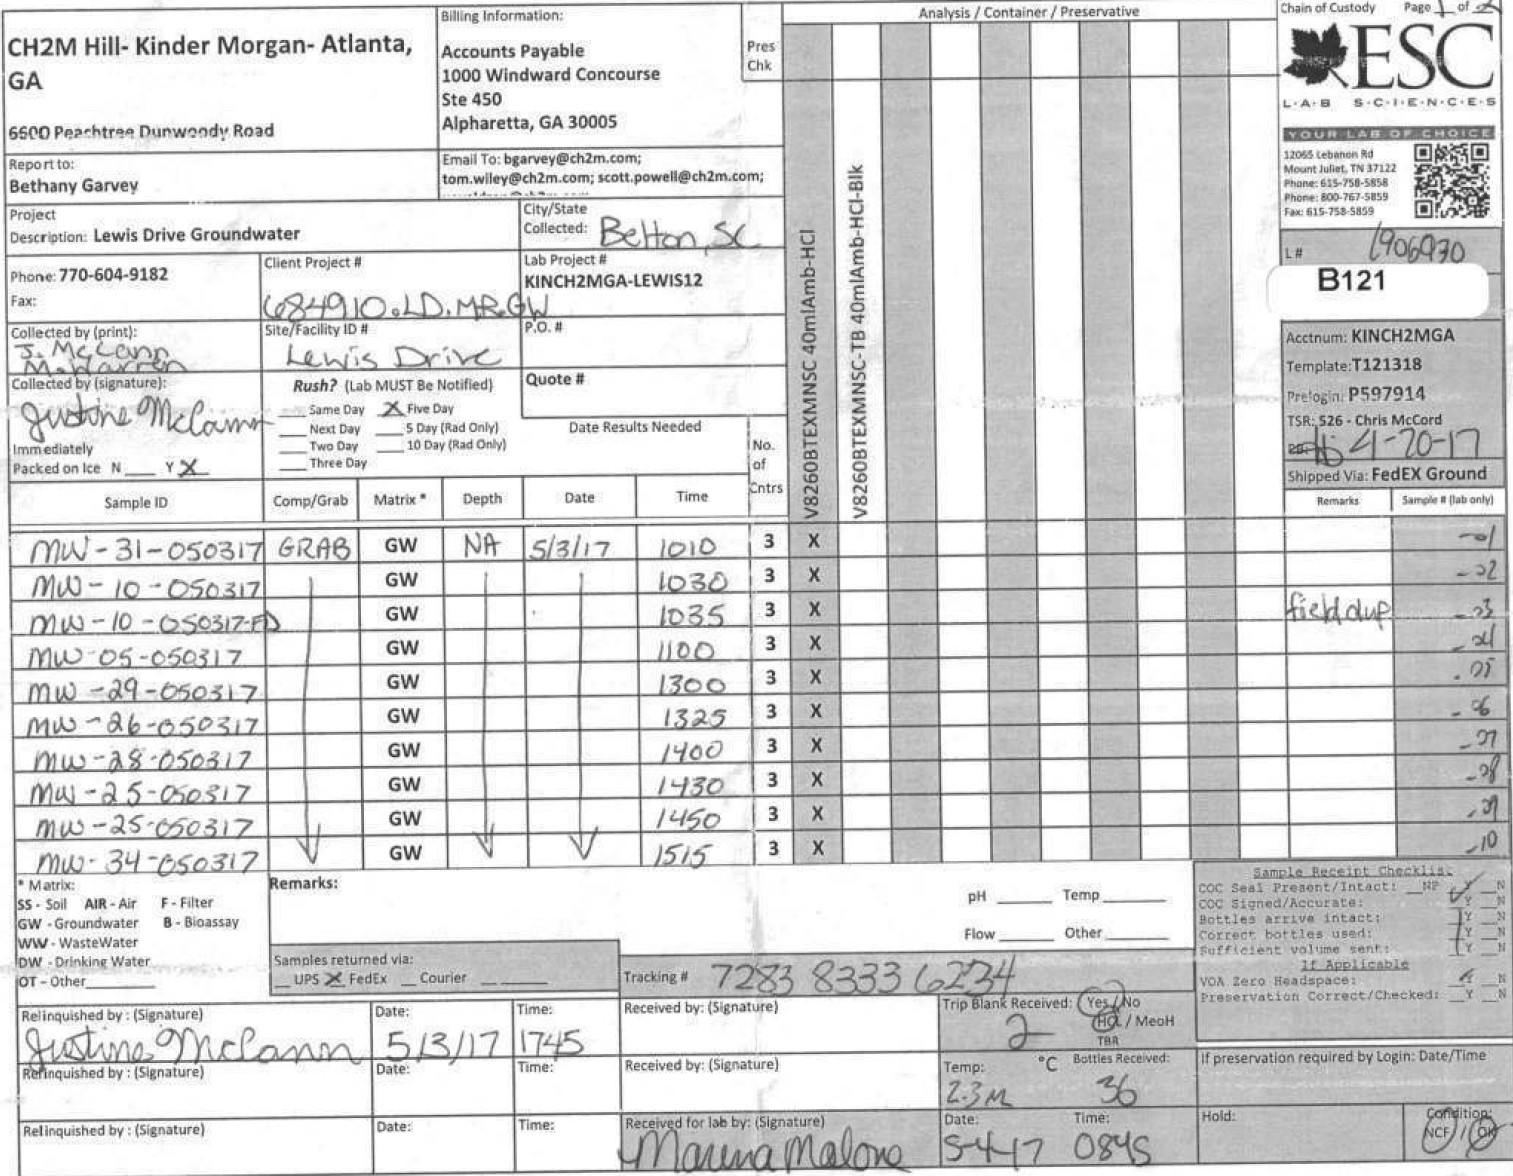 CH2M Hill- Kinder Morgan- Atlanta, GA
6600 Peachtree Dunwoody Road
Billing Information:
Accounts Payable
1000 Windward Concourse
Ste 450
Alpharetta, GA 30005
Pres Chk
Analysis / Container / Preservative
Chain of Custody Page 1 of 2
ESC
L·A·B S·C·I·E·N·C·E·S
YOUR LAB OF CHOICE
12065 Lebanon Rd
Mount Juliet, TN 37122
Phone: 615-758-5858
Phone: 800-767-5859
Fax: 615-758-5859
Report to:
Bethany Garvey
Email To: bgarvey@ch2m.com;
tom.wiley@ch2m.com; scott.powell@ch2m.com;
Project
Description: Lewis Drive Groundwater
City/State
Collected: Belton, SC
Phone: 770-604-9182
Fax:
Client Project #
684910.LD.MR.GW
Lab Project #
KINCH2MGA-LEWIS12
Collected by (print):
J. McCann
M. Warren
Site/Facility ID #
Lewis Drive
P.O. #
Collected by (signature):
Justine McCann
Rush? (Lab MUST Be Notified)
Same Day X Five Day
Next Day 5 Day (Rad Only)
Two Day 10 Day (Rad Only)
Three Day
Quote #
Date Results Needed
Immediately
Packed on Ice N Y X
No. of Cntrs
V8260BTEXMNSC 40mlAmb-HCl
V8260BTEXMNSC-TB 40mlAmb-HCl-Blk
L # L906930
B121
Acctnum: KINCH2MGA
Template: T121318
Prelogin: P597914
TSR: 526 - Chris McCord
PB: 4-20-17
Shipped Via: FedEX Ground
Sample ID Comp/Grab Matrix * Depth Date Time Remarks Sample # (lab only)
MW-31-050317 GRAB GW NA 5/3/17 1010 3 X -01
MW-10-050317 GW 1030 3 X -02
MW-10-050317-FD GW 1035 3 X field dup -03
MW-05-050317 GW 1100 3 X -04
MW-29-050317 GW 1300 3 X -05
MW-26-050317 GW 1325 3 X -06
MW-28-050317 GW 1400 3 X -07
MW-25-050317 GW 1430 3 X -08
MW-25-050317 GW 1450 3 X -09
MW-34-050317 GW 1515 3 X -10
* Matrix:
SS - Soil AIR - Air F - Filter
GW - Groundwater B - Bioassay
WW - WasteWater
DW - Drinking Water
OT - Other
Remarks:
pH Temp
Flow Other
Samples returned via:
UPS X FedEx Courier
Tracking # 7283 8333 6234
Sample Receipt Checklist
COC Seal Present/Intact: NP Y N
COC Signed/Accurate: Y N
Bottles arrive intact: Y N
Correct bottles used: Y N
Sufficient volume sent: Y N
If Applicable
VOA Zero Headspace: Y N
Preservation Correct/Checked: Y N
Relinquished by : (Signature)
Justine McCann
Date: 5/3/17
Time: 1745
Received by: (Signature)
Trip Blank Received: Yes / No
2 HCL / MeoH
TBR
Relinquished by : (Signature)
Date:
Time:
Received by: (Signature)
Temp: °C
2.3 M
Bottles Received:
36
If preservation required by Login: Date/Time
Relinquished by : (Signature)
Date:
Time:
Received for lab by: (Signature)
Date: 5-4-17
Time: 0845
Hold:
Condition:
NCF / OK